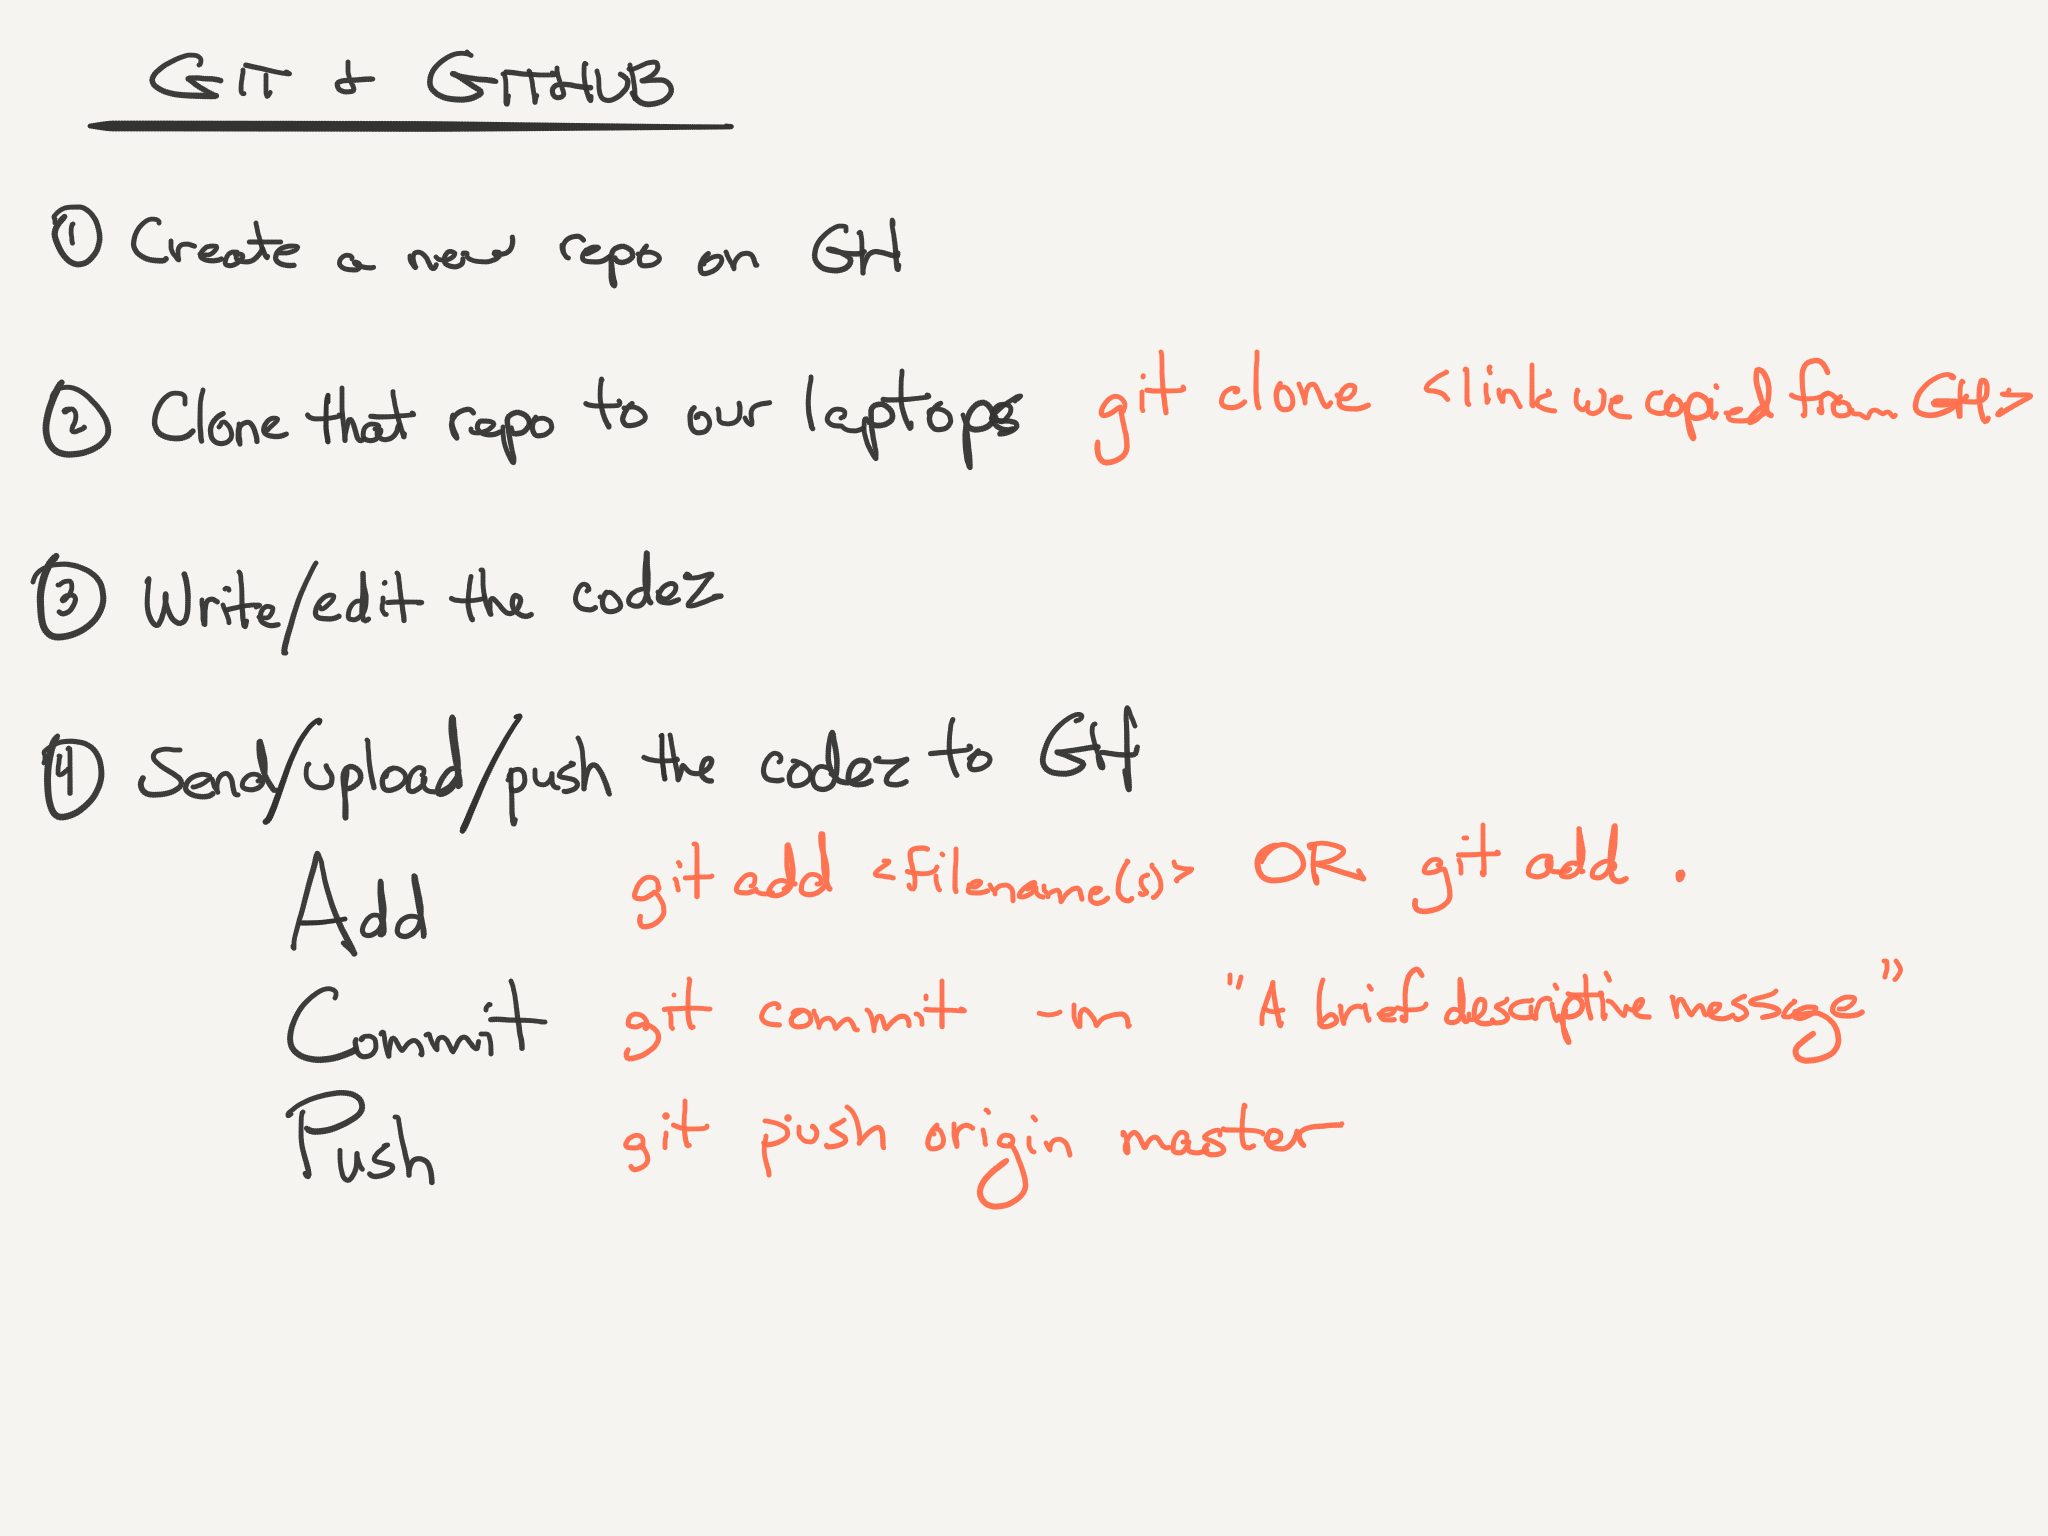 GIT & GITHUB
① Create a new repo on GH
② Clone that repo to our laptops git clone <link we copied from GH>
③ Write/edit the codez
④ Send/upload/push the codez to GH
Add git add <filename(s)> OR git add .
Commit git commit -m "A brief descriptive message"
Push git push origin master